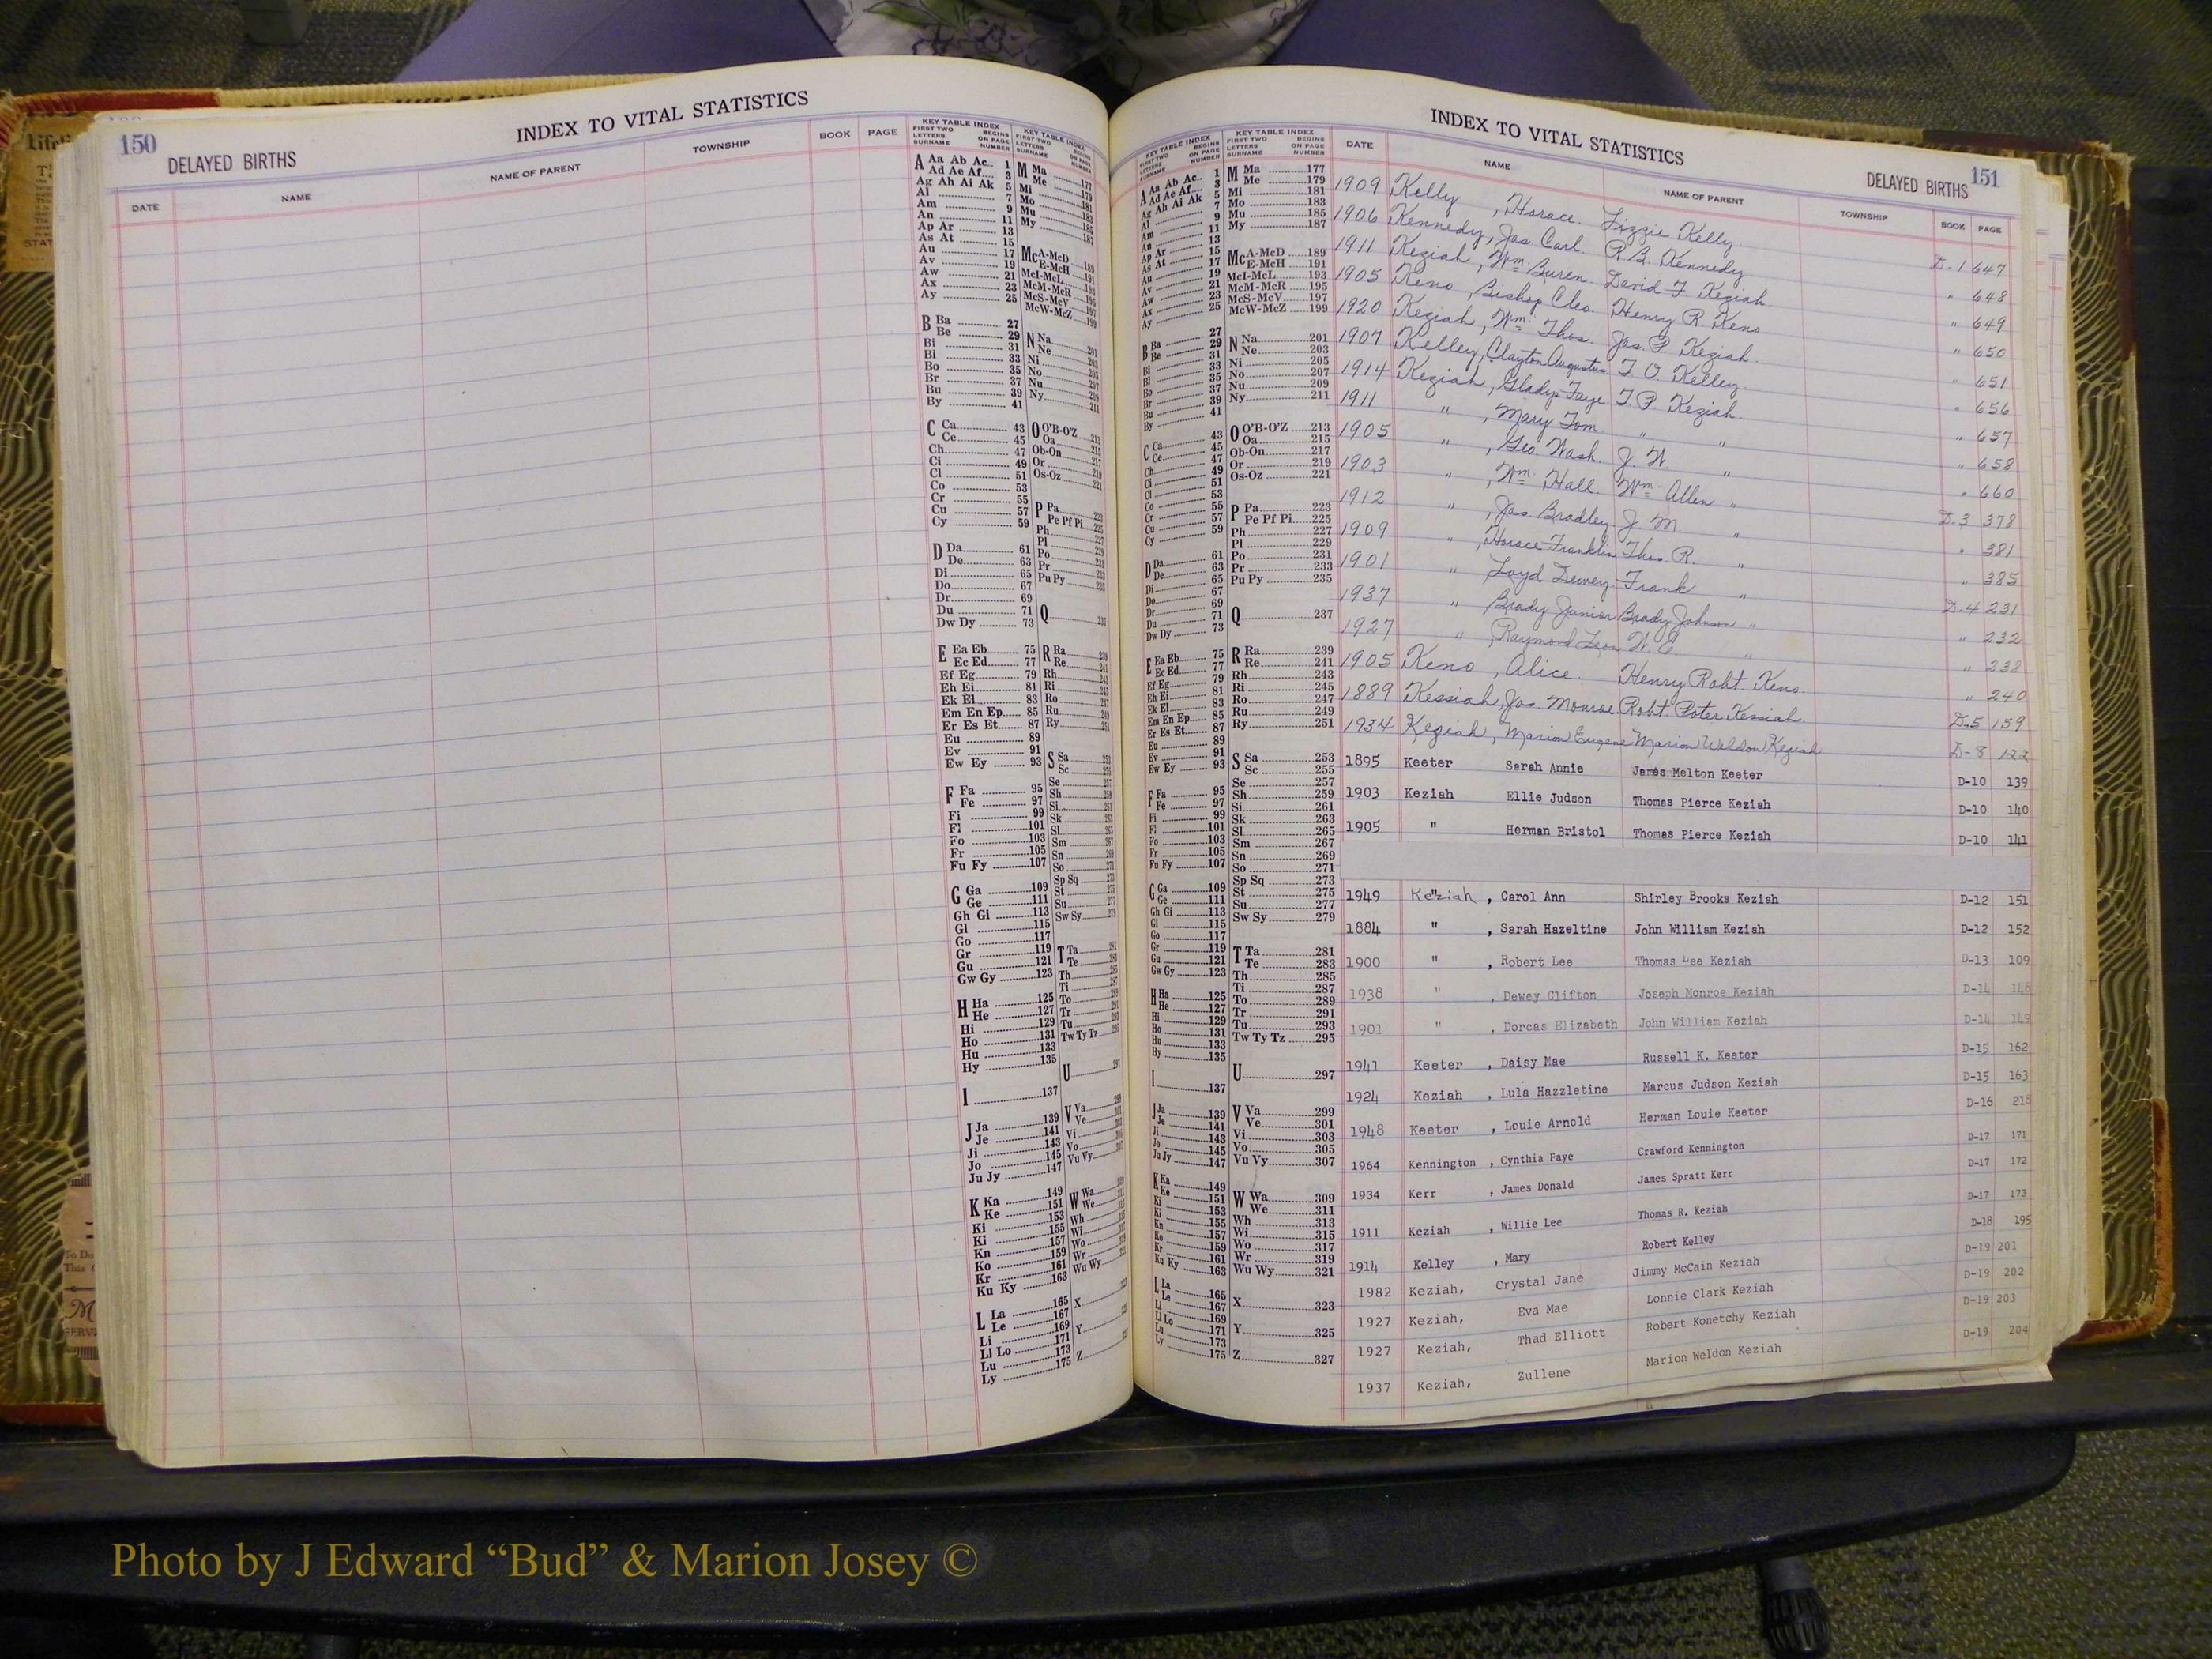 150
INDEX TO VITAL STATISTICS
DELAYED BIRTHS
DATE NAME NAME OF PARENT TOWNSHIP BOOK PAGE
KEY TABLE INDEX KEY TABLE INDEX
FIRST TWO LETTERS SURNAME BEGINS ON PAGE NUMBER
A Aa Ab Ac.. 1
Ad Ae Af.... 3
Ag Ah Ai Ak 5
Al 7
Am 9
An 11
Ap Ar 13
As At 15
Au 17
Av 19
Aw 21
Ax 23
Ay 25
B Ba 27
Be 29
Bi 31
Bi 33
Bo 35
Br 37
Bu 39
By 41
C Ca 43
Ce 45
Ch 47
Ci 49
Cl 51
Co 53
Cr 55
Cu 57
Cy 59
D Da 61
De 63
Di 65
Do 67
Dr 69
Du 71
Dw Dy 73
E Ea Eb 75
Ec Ed 77
Ef Eg 79
Eh Ei 81
Ek El 83
Em En Ep 85
Er Es Et 87
Eu 89
Ev 91
Ew Ey 93
F Fa 95
Fe 97
Fi 99
Fl 101
Fo 103
Fr 105
Fu Fy 107
G Ga 109
Ge 111
Gh Gi 113
Gl 115
Go 117
Gr 119
Gu 121
Gw Gy 123
H Ha 125
He 127
Hi 129
Ho 131
Hu 133
Hy 135
I 137
J Ja 139
Je 141
Ji 143
Jo 145
Ju Jy 147
K Ka 149
Ke 151
Ki 153
Ki 155
Kn 157
Ko 159
Kr 161
Ku Ky 163
L La 165
Le 167
Li 169
Ll Lo 171
Lu 173
Ly 175
INDEX TO VITAL STATISTICS
DELAYED BIRTHS 151
KEY TABLE INDEX
FIRST TWO LETTERS SURNAME BEGINS ON PAGE NUMBER
M Ma 177
Me 179
Mi 181
Mo 183
Mu 185
My 187
Mc A-McD 189
E-McH 191
McI-McL 193
McM-McR 195
McS-McV 197
McW-McZ 199
N Na 201
Ne 203
Ni 205
No 207
Nu 209
Ny 211
O O'B-O'Z 213
Oa 215
Ob-On 217
Or 219
Os-Oz 221
P Pa 223
Pe Pf Pi 225
Ph 227
Pl 229
Po 231
Pr 233
Pu Py 235
Q 237
R Ra 239
Re 241
Rh 243
Ri 245
Ro 247
Ru 249
Ry 251
S Sa 253
Sc 255
Se 257
Sh 259
Si 261
Sk 263
Sl 265
Sm 267
Sn 269
So 271
Sp Sq 273
St 275
Su 277
Sw Sy 279
T Ta 281
Te 283
Th 285
Ti 287
To 289
Tr 291
Tu 293
Tw Ty Tz 295
U 297
V Va 299
Ve 301
Vi 303
Vo 305
Vu Vy 307
W Wa 309
We 311
Wh 313
Wi 315
Wo 317
Wr 319
Wu Wy 321
X 323
Y 325
Z 327
DATE NAME NAME OF PARENT TOWNSHIP BOOK PAGE
1909 Kelly, Horace. Lizzie Kelly D-1 647
1906 Kennedy, Jas. Carl. R. B. Kennedy " 648
1911 Keziah, Wm. Buren David F. Keziah " 649
1905 Keno, Bishop Cleo. Henry R. Keno " 650
1920 Keziah, Wm. Thos. Jas. P. Keziah " 651
1907 Kelley, Clayton Augustus T. O. Kelley " 656
1914 Keziah, Gladys Faye T. P. Keziah " 657
1911 ", Mary Tom. " " " 658
1905 ", Geo. Wash. J. W. " " 660
1903 ", Wm. Hall. Wm. Allen " D-3 378
1912 ", Jas. Bradley. J. M. " " 381
1909 ", Horace Franklin Thos. R. " " 385
1901 " Loyd Dewey. Frank " D-4 231
1937 " Brady Junior Brady Johnson " " 232
1927 ", Raymond Leon W. C. " " 238
1905 Keno, Alice. Henry Robt. Keno " 240
1889 Kessiah, Jas. Monroe Robt. Poter Kessiah D-5 159
1934 Keziah, Marion Eugene Marion Weldon Keziah D-8 122
1895 Keeter Sarah Annie James Melton Keeter D-10 139
1903 Keziah Ellie Judson Thomas Pierce Keziah D-10 140
1905 " Herman Bristol Thomas Pierce Keziah D-10 141
1949 Keziah , Carol Ann Shirley Brooks Keziah D-12 151
1884 " , Sarah Hazeltine John William Keziah D-12 152
1900 " , Robert Lee Thomas Lee Keziah D-13 109
1938 " , Dewey Clifton Joseph Monroe Keziah D-14 148
1901 " , Dorcas Elizabeth John William Keziah D-14 149
1941 Keeter , Daisy Mae Russell K. Keeter D-15 162
1924 Keziah , Lula Hazzletine Marcus Judson Keziah D-15 163
1948 Keeter , Louie Arnold Herman Louie Keeter D-16 218
1964 Kennington , Cynthia Faye Crawford Kennington D-17 171
1934 Kerr , James Donald James Spratt Kerr D-17 172
1911 Keziah , Willie Lee Thomas R. Keziah D-17 173
1914 Kelley , Mary Robert Kelley D-18 195
1982 Keziah, Crystal Jane Jimmy McCain Keziah D-19 201
1927 Keziah, Eva Mae Lonnie Clark Keziah D-19 202
1927 Keziah, Thad Elliott Robert Konetchy Keziah D-19 203
1937 Keziah, Zullene Marion Weldon Keziah D-19 204
Photo by J Edward “Bud” & Marion Josey ©